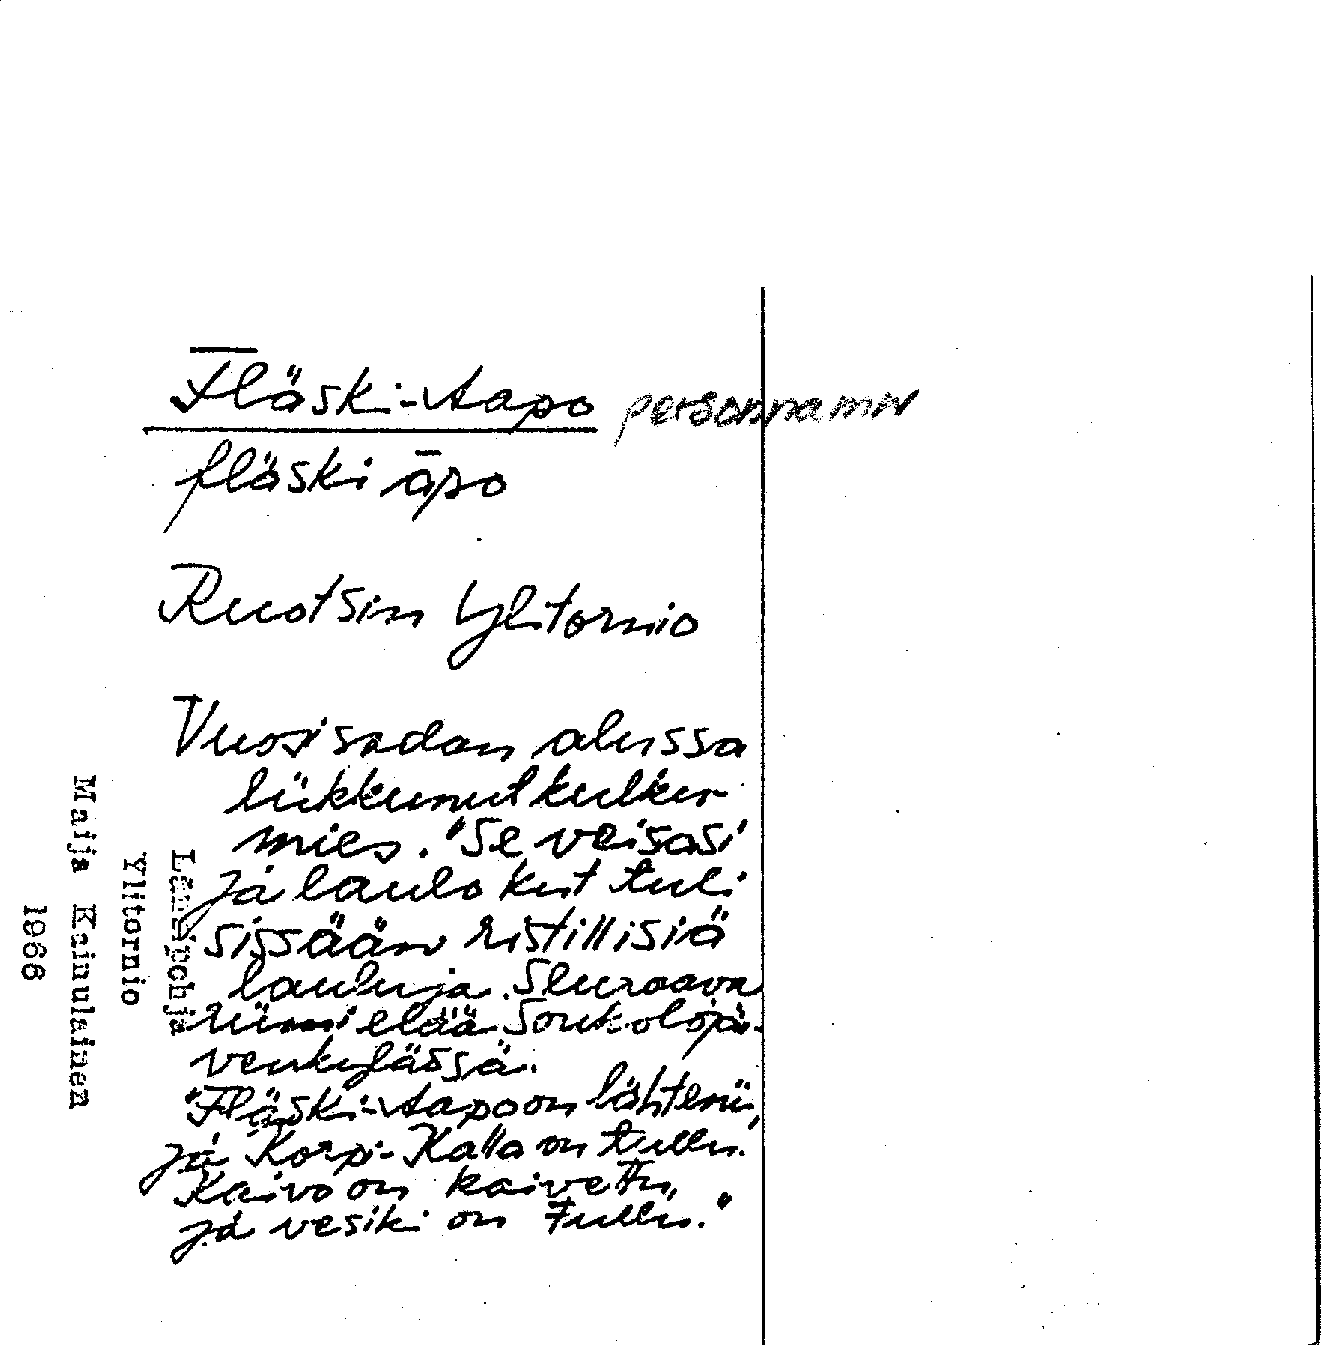 Fläski-Aapo personnamn
fläski āpo
Ruotsin Ylitornio
Vuosisadan alussa
liikkunut kulkur-
mies. "Se veisasi
ja laulo kut tuli
sissään ristillisiä
lauluja. Seuraava
riimi elää Soukolojär-
venkylässä:
"Fläski-Aapo on lähteny,
ja Korpi-Kalla on tullu.
Kaivo on kaivettu,
ja vesiki on tullu."
Länsipohja
Ylitornio
Maija Kainulainen
1966